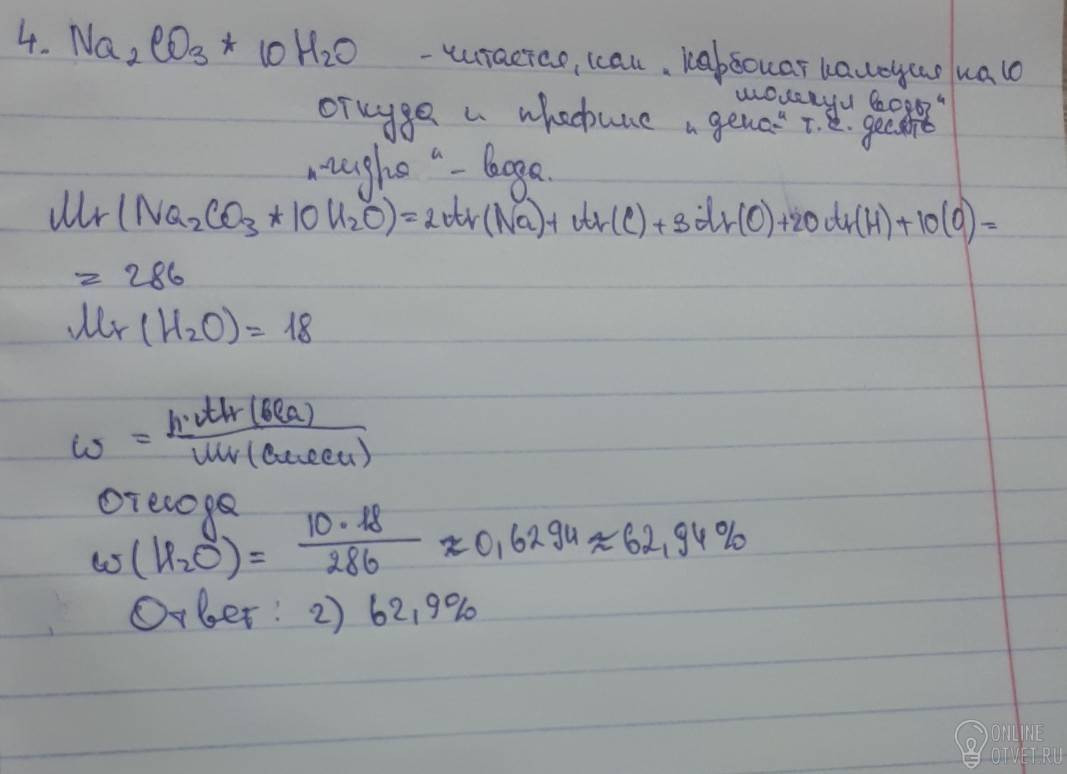 4. Na₂CO₃ * 10 H₂O - читается, как „карбонат кальция на 10
молекул воды"
откуда и префикс „дека-" т.е. десять
„-гидра" - вода.
Mr(Na₂CO₃ * 10 H₂O) = 2Ar(Na) + Ar(C) + 3Ar(O) + 20Ar(H) + 10(O) =
= 286
Mr(H₂O) = 18
w = n·Mr(в-ва) / Mr(смеси)
Отсюда
w(H₂O) = 10·18 / 286 ≈ 0,6294 ≈ 62,94%
Ответ: 2) 62,9%
ONLINE
OTVET.RU